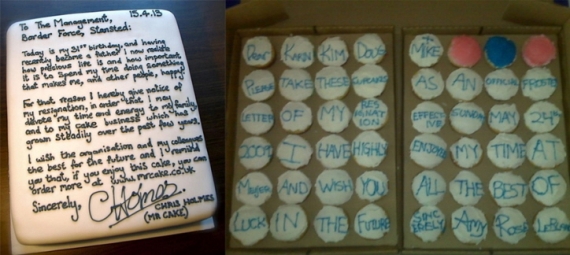 15.4.13
To The Management,
Border Force, Stansted:
Today is my 31st birthday, and having
recently become a father I now realise
how precious life is and how important
it is to spend my time doing something
that makes me, and other people, happy.
For that reason I hereby give notice of
my resignation, in order that I may
devote my time and energy to my family,
and to my cake business which has
grown steadily over the past few years.
I wish the organisation and my colleagues
the best for the future and I remind
you that, if you enjoy this cake, you can
order more at www.mrcake.co.uk
Sincerely,
CHRIS HOLMES
(MR CAKE)
RON KAREN KIM DOUG MIKE
PLEASE TAKE THESE CUPCAKES AS AN OFFICIAL
LETTER OF MY RESIGNATION EFFECTIVE SUNDAY MAY 24th
2009 I HAVE HIGHLY ENJOYED MY TIME AT
AND WISH YOU ALL THE BEST OF
LUCK IN THE FUTURE SINCERELY Amy Rose